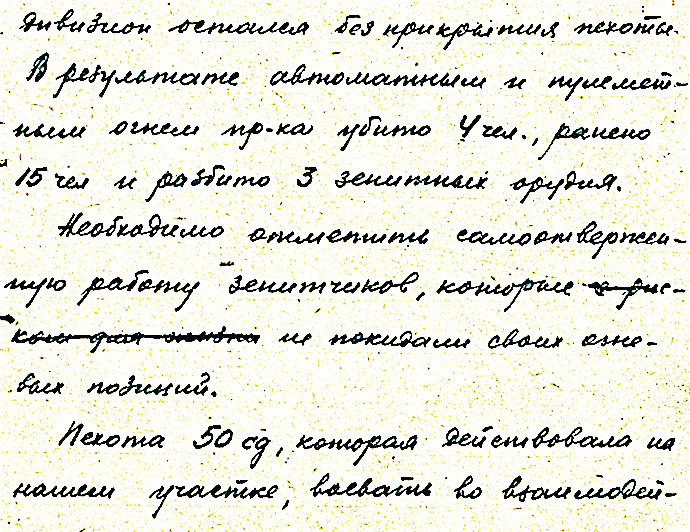 дивизион остался без прикрытия пехоты.
В результате автоматным и пулемет-
ным огнем пр-ка убито 4 чел., ранено
15 чел и разбито 3 зенитных орудия.
Необходимо отметить самоотвержен-
ную работу зенитчиков, которые с рис-
ком для жизни не покидали своих огне-
вых позиций.
Пехота 50 сд, которая действовала на
нашем участке, воевать во взаимодей-